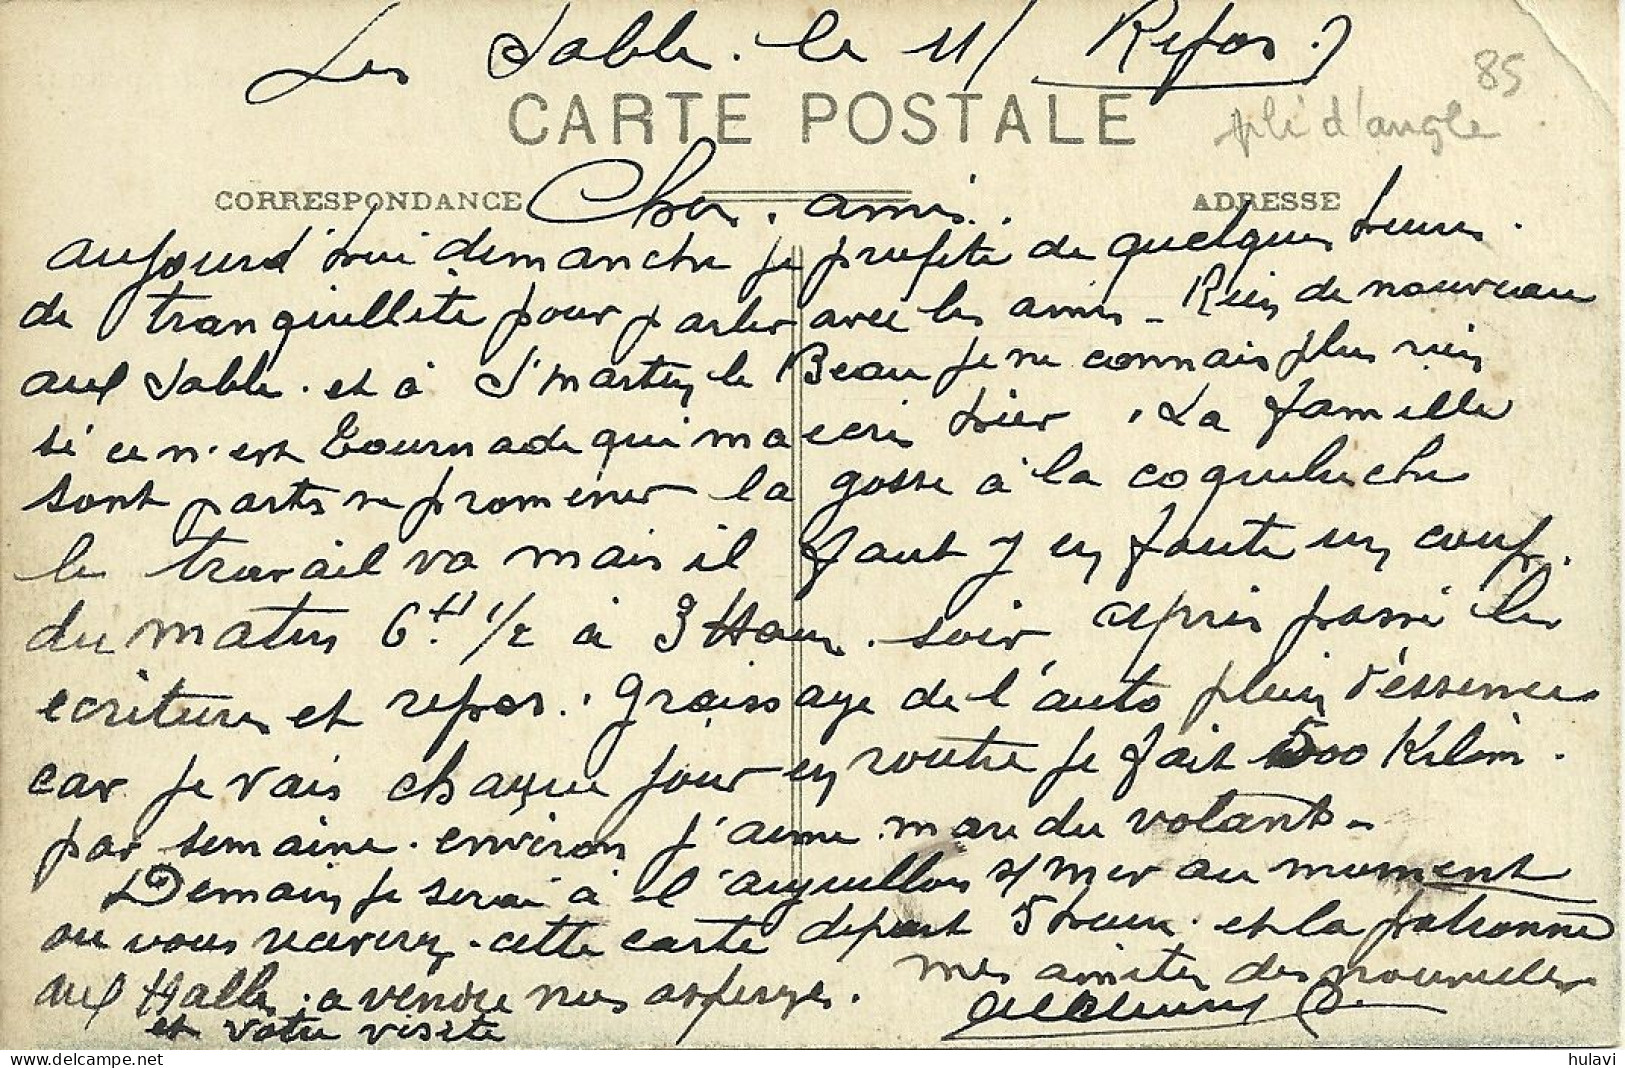 Les Sable. le 11/ Repos.
85
pli d'angle
CARTE POSTALE
CORRESPONDANCE
ADRESSE
Cher. amis.
aujourd'hui dimanche je profite de quelques heures.
de tranquillite pour parler avec les amis - Rien de nouveau
aux Sable. et à St martin le Beau je ne connais plus rien
si ce n'est Tournade qui ma ecris hier. La famille
sont partis se promener la gosse à la coqueluche
le travail va mais il faut y en foute un coup.
du matin 6H. 1/2 à 3 Heur. soir apris passé les
ecritures et repos. Graissage de l'auto plein d'éssence
car je vais chaque jour en route je fait 500 Kilom.
par semaine. environ j'aime mare du volant -
Demain je serai à l'aiguillon s/ mer au moment
ou vous receverez. cette carte depart 5 heur. et la patronne
aux Halles. a vendre nos asperges. mes amities des nouvelles
et votre visite